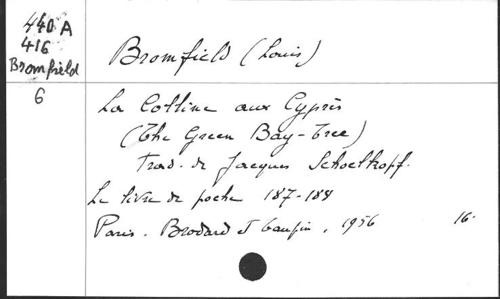 440 A
416
Bromfield
6
Bromfield (Louis)
La Colline aux Cyprès
(The Green Bay-Tree)
Trad. de Jacques Schoelkopf.
Le livre de poche 187-188
Paris. Brodard et Taupin. 1956 16.